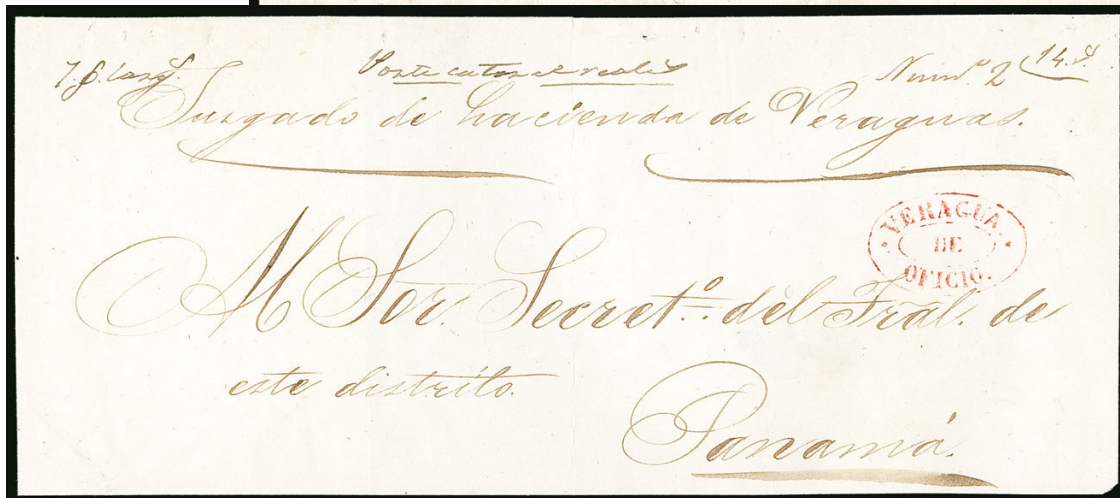 Porte catorce reales
Num.º 2 14. r.
Juzgado de hacienda de Veraguas.
VERAGUA.
DE
OFICIO.
Al Sor. Secret.º del Tral. de
este distrito.
Panamá.